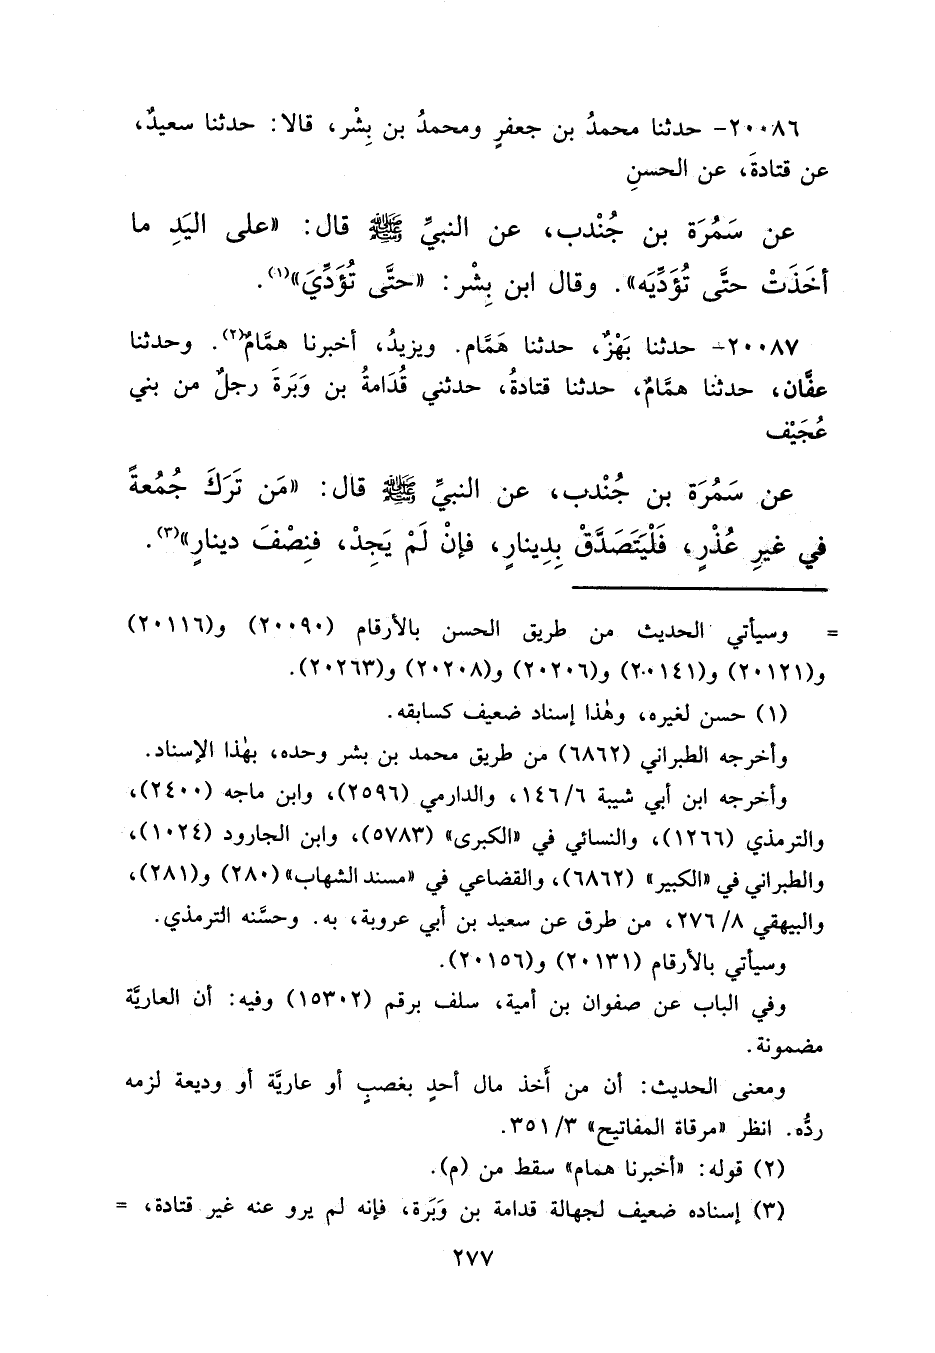 ٢٠٠٨٦- حدثنا محمدُ بن جعفرٍ ومحمدُ بن بِشْر، قالا: حدثنا سعيدٌ،
عن قتادةَ، عن الحسنِ
عن سَمُرَة بن جُنْدب، عن النبيِّ ﷺ قال: «على اليَدِ ما
أخَذَتْ حتَّى تُؤَدِّيَه». وقال ابن بِشْر: «حتَّى تُؤَدِّيَ»(١).
٢٠٠٨٧- حدثنا بَهْزٌ، حدثنا هَمَّام. ويزيدُ، أخبرنا همَّامٌ(٢). وحدثنا
عفَّان، حدثنا همَّامٌ، حدثنا قتادةُ، حدثني قُدَامةُ بن وَبَرَةَ رجلٌ من بني
عُجَيْف
عن سَمُرَة بن جُنْدب، عن النبيِّ ﷺ قال: «مَن تَرَكَ جُمُعةً
في غيرِ عُذْرٍ، فَلْيَتَصَدَّقْ بِدِينارٍ، فإنْ لَمْ يَجِدْ، فنِصْفَ دينارٍ»(٣).
= وسيأتي الحديث من طريق الحسن بالأرقام (٢٠٠٩٠) و(٢٠١١٦)
و(٢٠١٢١) و(٢٠١٤١) و(٢٠٢٠٦) و(٢٠٢٠٨) و(٢٠٢٦٣).
(١) حسن لغيره، وهٰذا إسناد ضعيف كسابقه.
وأخرجه الطبراني (٦٨٦٢) من طريق محمد بن بشر وحده، بهٰذا الإسناد.
وأخرجه ابن أبي شيبة ١٤٦/٦، والدارمي (٢٥٩٦)، وابن ماجه (٢٤٠٠)،
والترمذي (١٢٦٦)، والنسائي في «الكبرى» (٥٧٨٣)، وابن الجارود (١٠٢٤)،
والطبراني في «الكبير» (٦٨٦٢)، والقضاعي في «مسند الشهاب» (٢٨٠) و(٢٨١)،
والبيهقي ٢٧٦/٨، من طرق عن سعيد بن أبي عروبة، به. وحسَّنه الترمذي.
وسيأتي بالأرقام (٢٠١٣١) و(٢٠١٥٦).
وفي الباب عن صفوان بن أمية، سلف برقم (١٥٣٠٢) وفيه: أن العاريَّة
مضمونة.
ومعنى الحديث: أن من أَخذ مال أحدٍ بغصبٍ أو عاريَّة أو وديعة لزمه
ردُّه. انظر «مرقاة المفاتيح» ٣٥١/٣.
(٢) قوله: «أخبرنا همام» سقط من (م).
(٣) إسناده ضعيف لجهالة قدامة بن وَبَرَة، فإنه لم يرو عنه غير قتادة، =
٢٧٧